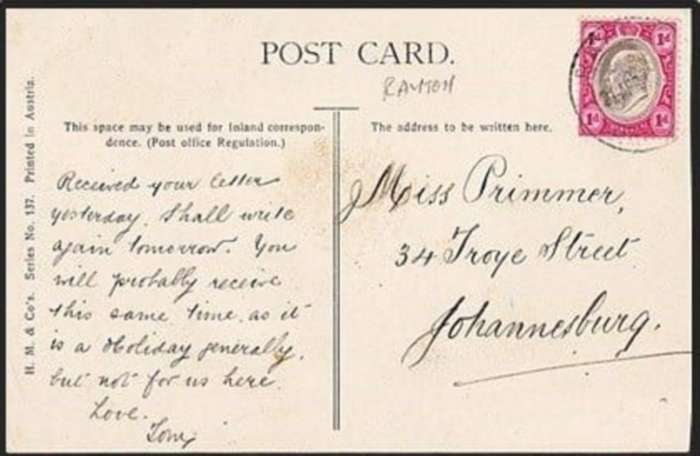 POST CARD.
RAYTON
This space may be used for Inland correspon-
dence. (Post office Regulation.)
The address to be written here.
H. M. & Co's. Series No. 137. Printed in Austria.
Received your letter
yesterday. Shall write
again tomorrow. You
will probably receive
this same time, as it
is a Holiday generally,
but not for us here.
Love.
Tom
Miss Primmer,
34 Troye Street
Johannesburg.
1d 1d
1d 1d